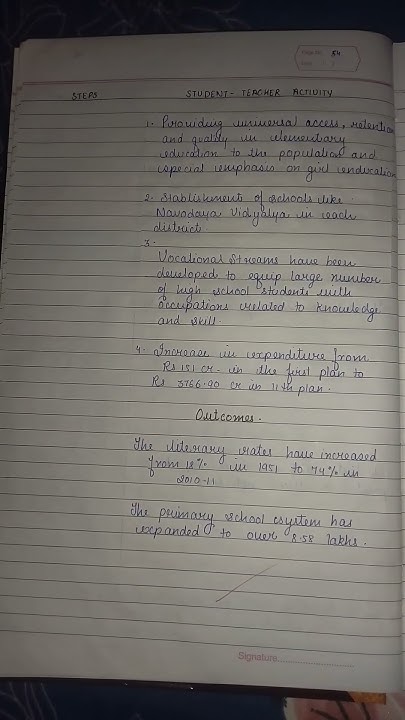 Page No. 54
Date
STEPS STUDENT-TEACHER ACTIVITY
1. Providing universal access, retention
and quality in elementary
education to the population and
special emphasis on girl education
2. Stablishment of schools like
Navodaya Vidyalya in each
district.
3.
Vocational Streams have been
developed to equip large number
of high school students with
occupations related to knowledge
and skill.
4. Increase in expenditure from
Rs 151 cr. in the first plan to
Rs 3766.90 cr in 11th plan.
Outcomes.
The literary rates have increased
from 18% in 1951 to 74% in
2010-11
The primary school system has
expanded to over 8.58 lakhs.
Signature